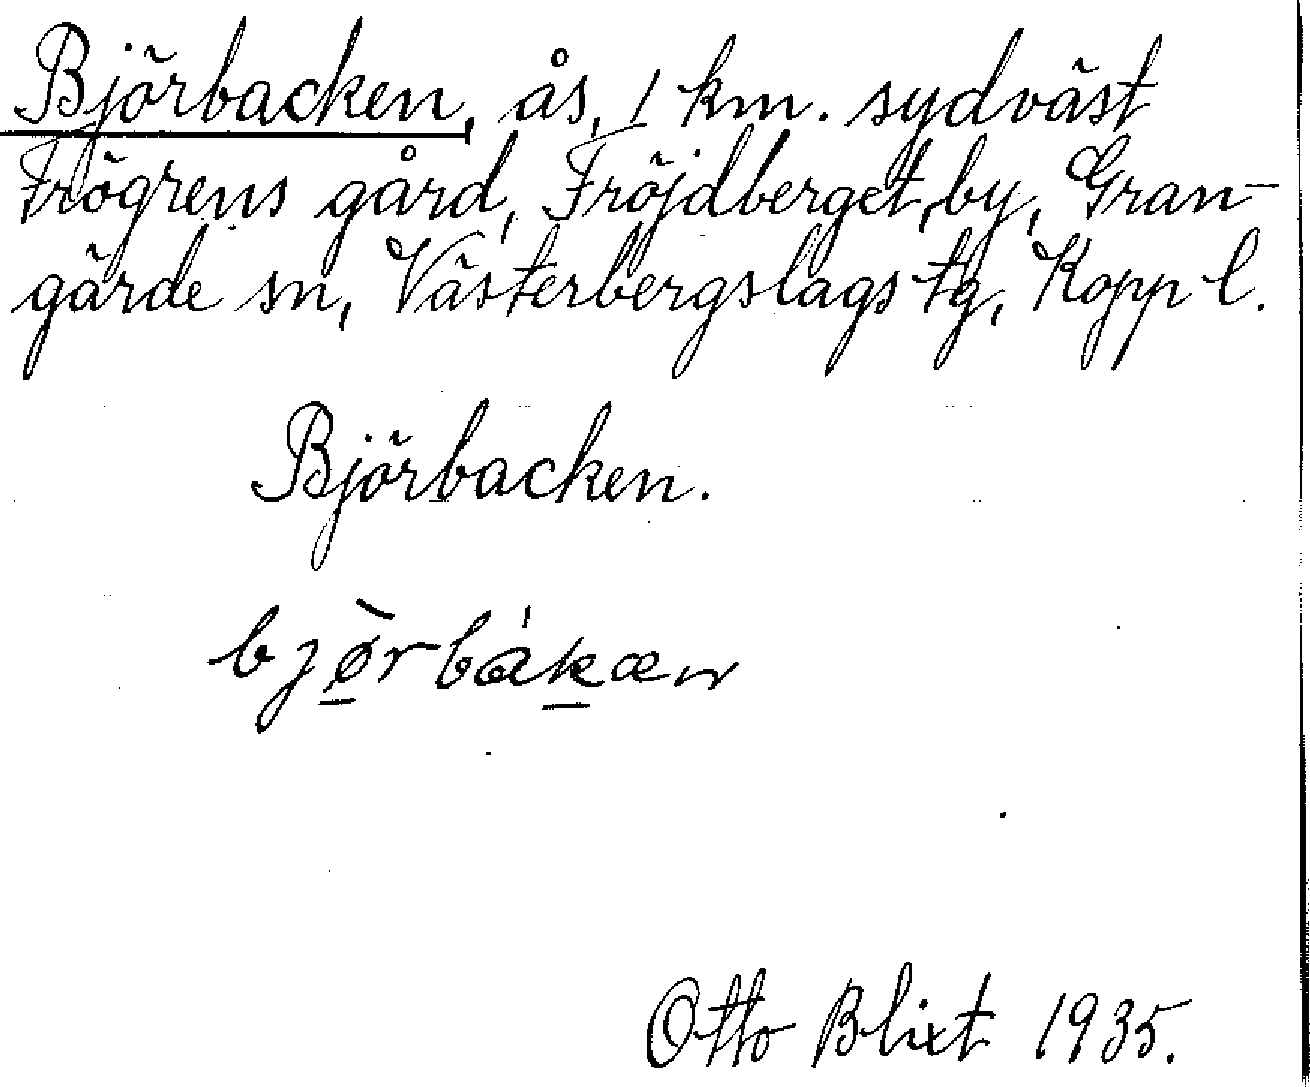 Björbacken, ås, 1 km. sydväst
Frögrens gård, Fröjdberget, by, Gran-
gärde sn, Västerbergslags tg, Kopp l.
Björbacken.
bjø̠̀rbák̠æn
Otto Blixt 1935.